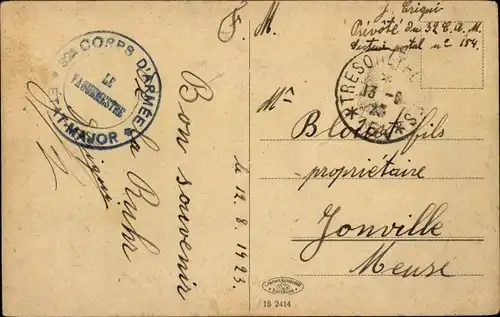 F. M.
J. Crigui
Prévôté du 32 C. A. M.
Secteur postal n° 154.
32e CORPS D'ARMÉE
LE
VAGUEMESTRE
ETAT-MAJOR
TRESOR ET P
13 - 8
23
154
Mr
Blouet fils
propriétaire
Jonville
Meuse
Bon souvenir
de la Ruhr
le 12. 8. 1923.
IS 2414